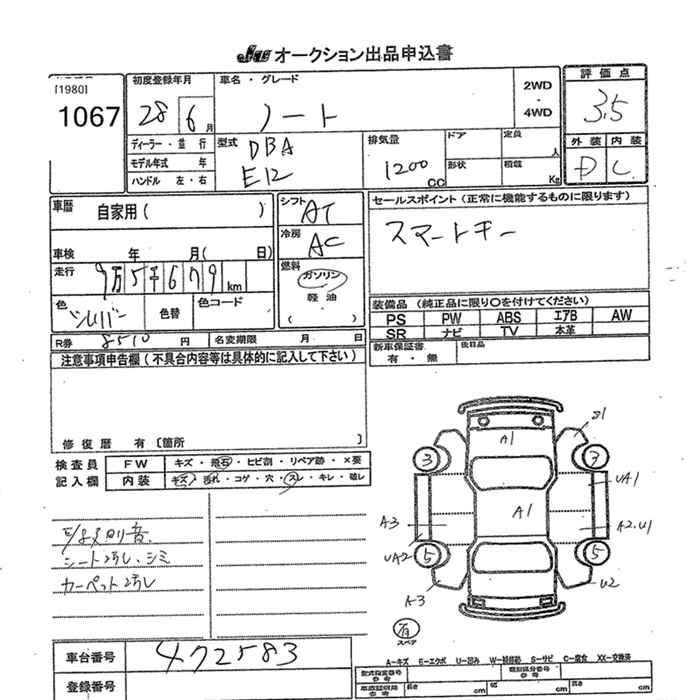 JU オークション出品申込書
[1980]
1067
初度登録年月
28 6 月
ディーラー・並行
モデル年式 年
ハンドル 左・右
車名・グレード
ノート
2WD
・
4WD
評価点
3.5
外装 内装
D C
型式
DBA
E12
排気量
1200 CC
ドア
形状
定員
人
積載
Kg
車歴 自家用( )
車検 年 月( 日)
走行 9万5千679 km
色 シルバー
色替
色コード
シフト AT
冷房 AC
燃料
ガソリン
軽油
( )
セールスポイント(正常に機能するものに限ります)
スマートキー
装備品(純正品に限り○を付けてください)
PS PW ABS エアB AW
SR ナビ TV 本革
新車保証書
有・無
後日品
R券 8510 円
名変期限 月 日
注意事項申告欄(不具合内容等は具体的に記入して下さい)
修復歴 有〔箇所 〕
検査員 FW キズ・飛石・ヒビ割・リペア跡・×要
記入欄 内装 キズ・汚れ・コゲ・穴・スレ・キレ・破レ
シート汚レ、シミ
カーペット汚レ
A1
B1
3
7
UA1
A1
A3
A2.U1
UA2
5
5
A3
U2
有
スペア
車台番号 472583
登録番号
A-キズ E-エクボ U-凹み W-補修跡 S-サビ C-腐食 XX-交換済
型式指定番号
参考
類別区分番号
参考
長さ cm
幅 cm
高さ cm